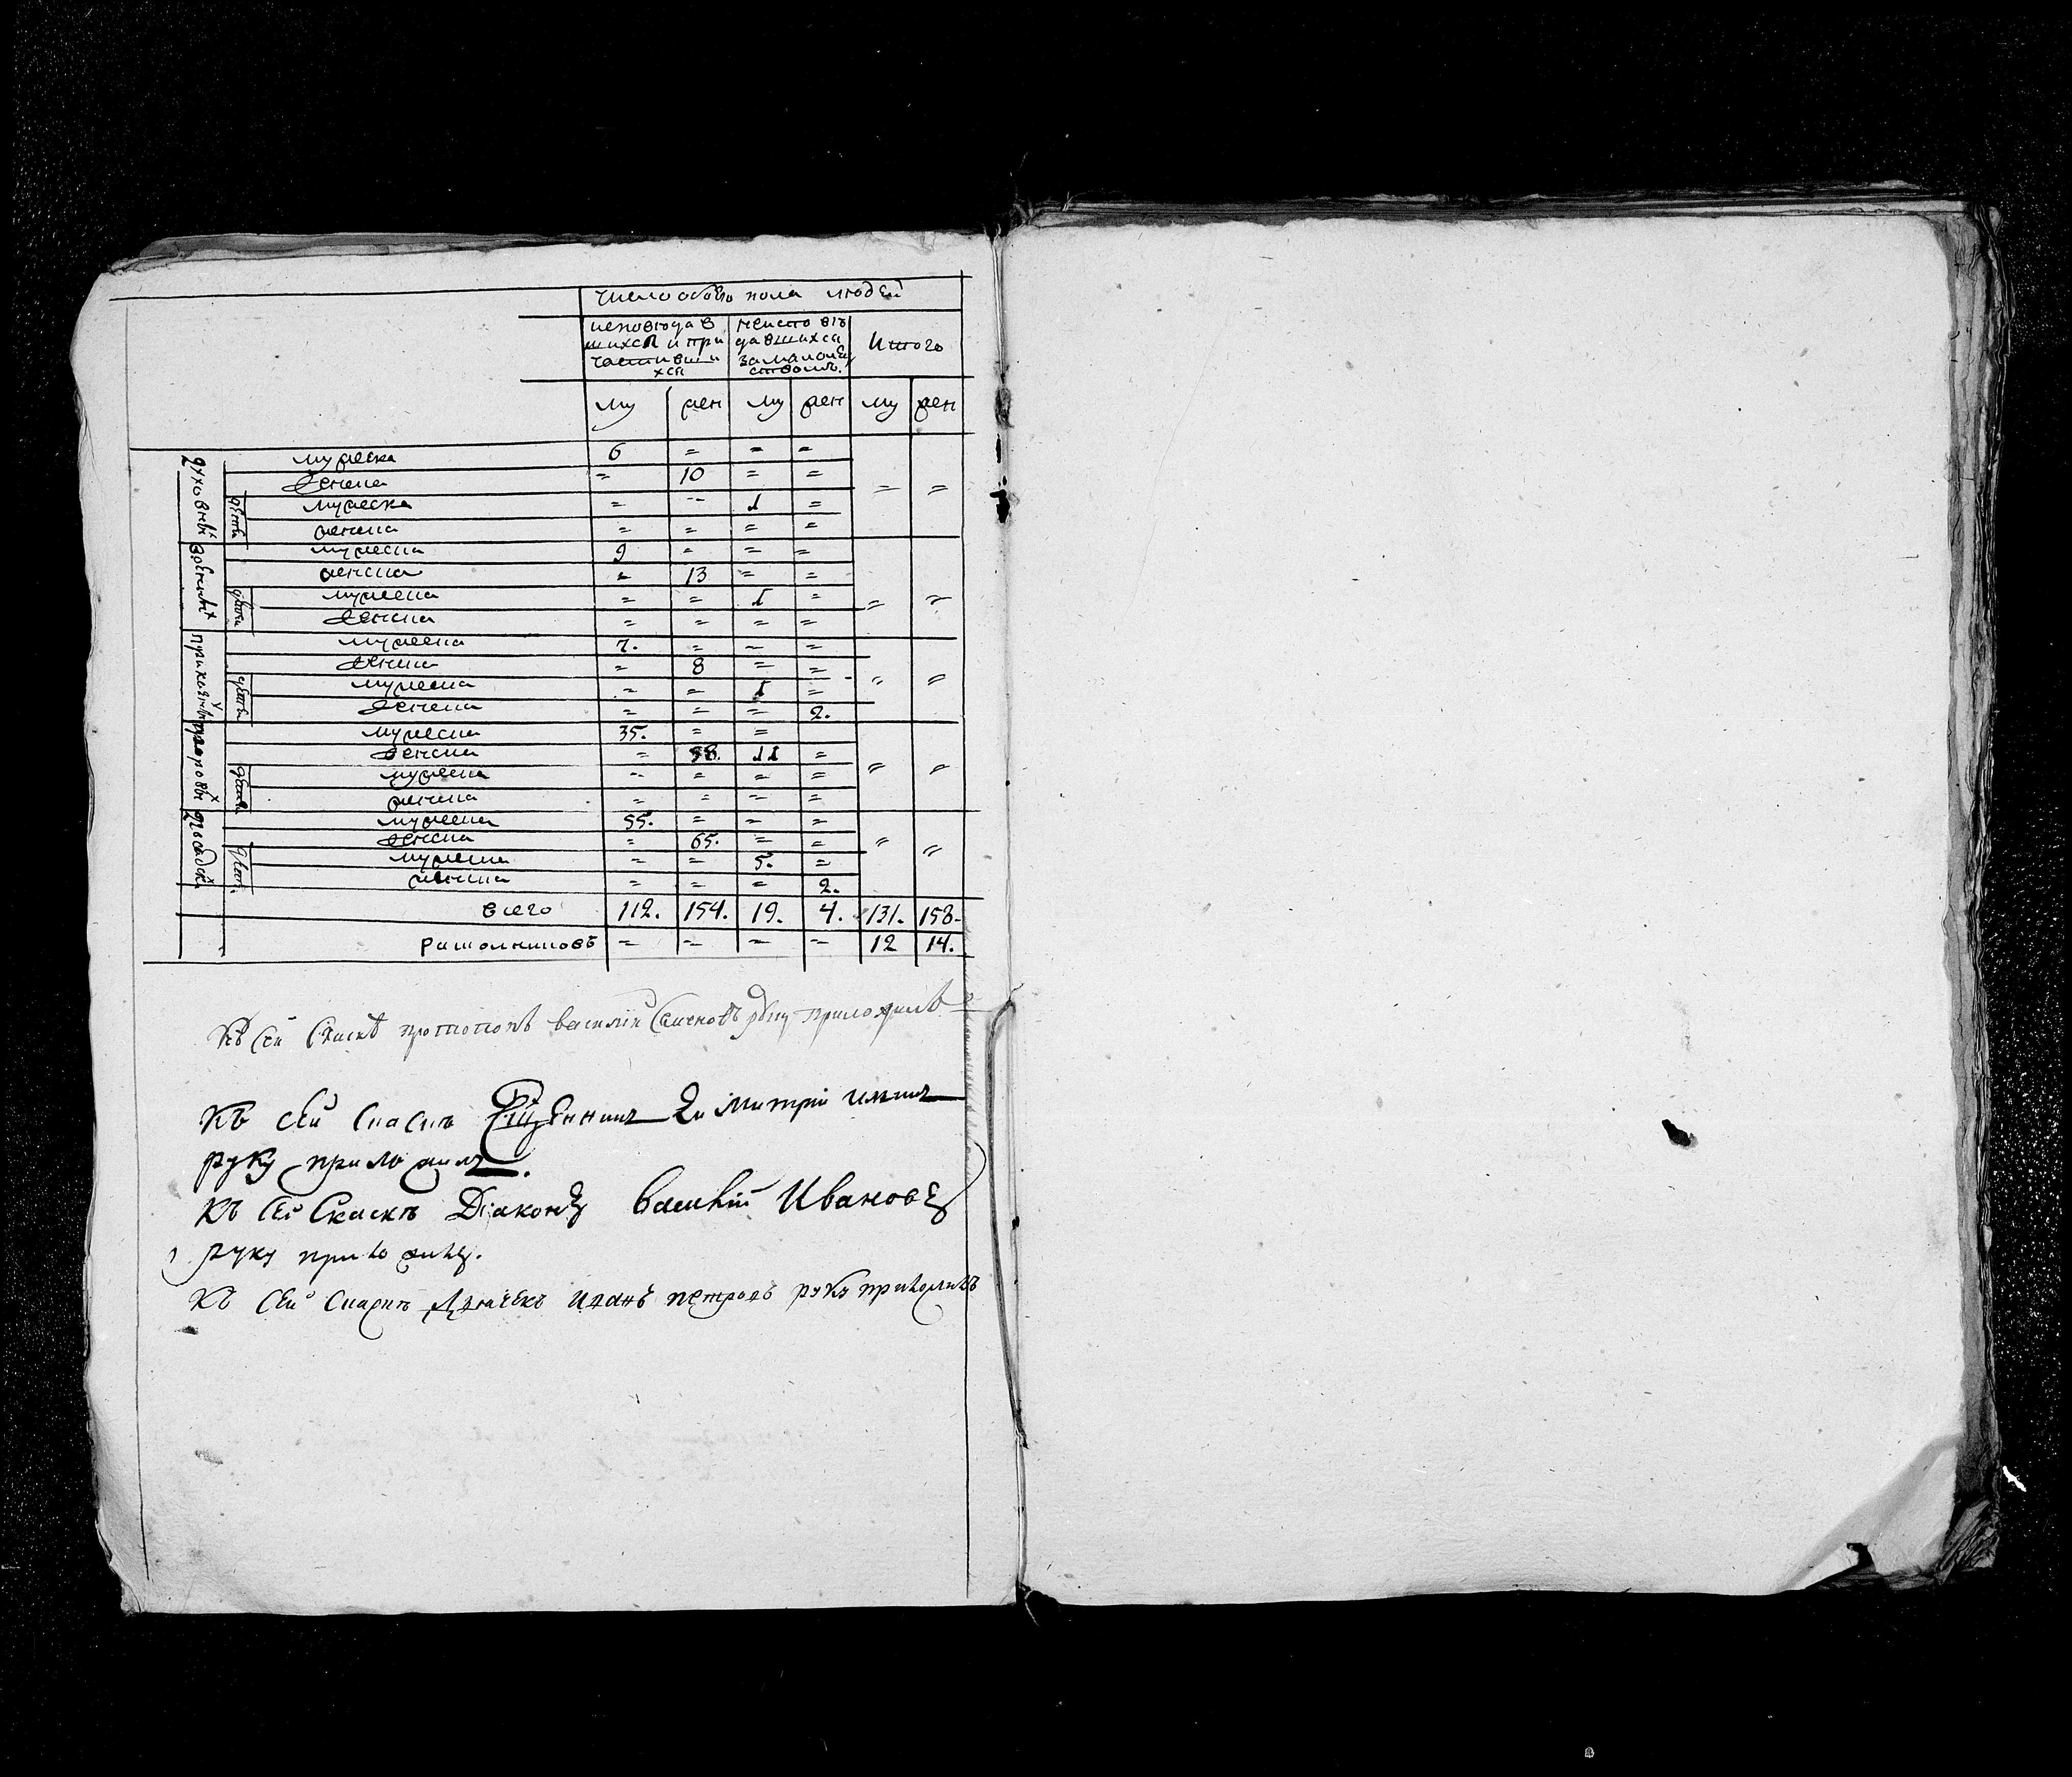 число обоего пола людей
исповедав
шихся и при
частивши
хся
неиспо вѣ
давшихся
замалолѣ
ством.
Итого
му жен му жен му жен
духовны
мужеска 6 = = =
женска = 10 = =
дѣти
мужеска = = 1 = = =
женска = = = =
военных
мужеска 9 = = =
женска = 13 = =
дѣти
мужеска = = 1 = = =
женска = = = =
приказны
мужеска 7. = = =
женска = 8 = =
дѣти
мужеска = = 1 = = =
женска = = = 2.
мужеска 35. = =
женска = 58. 11 =
дѣти
мужеска = = = = = =
женска = = = =
посадск
мужеска 55. = = =
женска = 65. = = = =
дѣти
мужеска = = 5. =
женска = = = 2.
всего 112. 154. 19. 4. 131. 158.
раскольников = = = = 12 14.
Къ сей скаскѣ протопопъ василий Семеновъ руку приложилъ
Къ сей скаскѣ Сщенникъ Димитрий
руку приложилъ.
Къ сей Скаскѣ Діаконъ Василій Ивановъ
руку приложилъ.
Къ сей скаскѣ Дьячекъ иванъ петровъ руку приложилъ